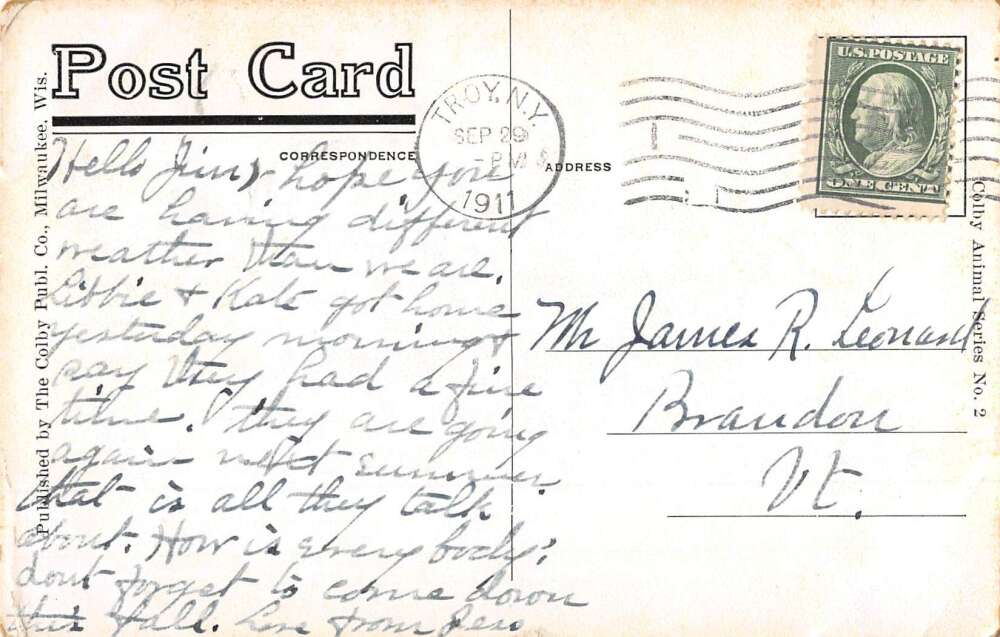 Post Card
CORRESPONDENCE
ADDRESS
Published by The Colby Publ. Co., Milwaukee, Wis.
Colby Animal Series No. 2
TROY, N.Y.
SEP 29
-PM
1911
U.S. POSTAGE
ONE CENT
Hello Jim, hope you
are having different
weather than we are.
Libbie & Kate got home
yesterday morning &
say they had a fine
time. they are going
again next summer.
that is all they talk
about. How is every body?
dont forget to come down
this fall. love from Jess
Mr James R. Leonard
Brandon
Vt.